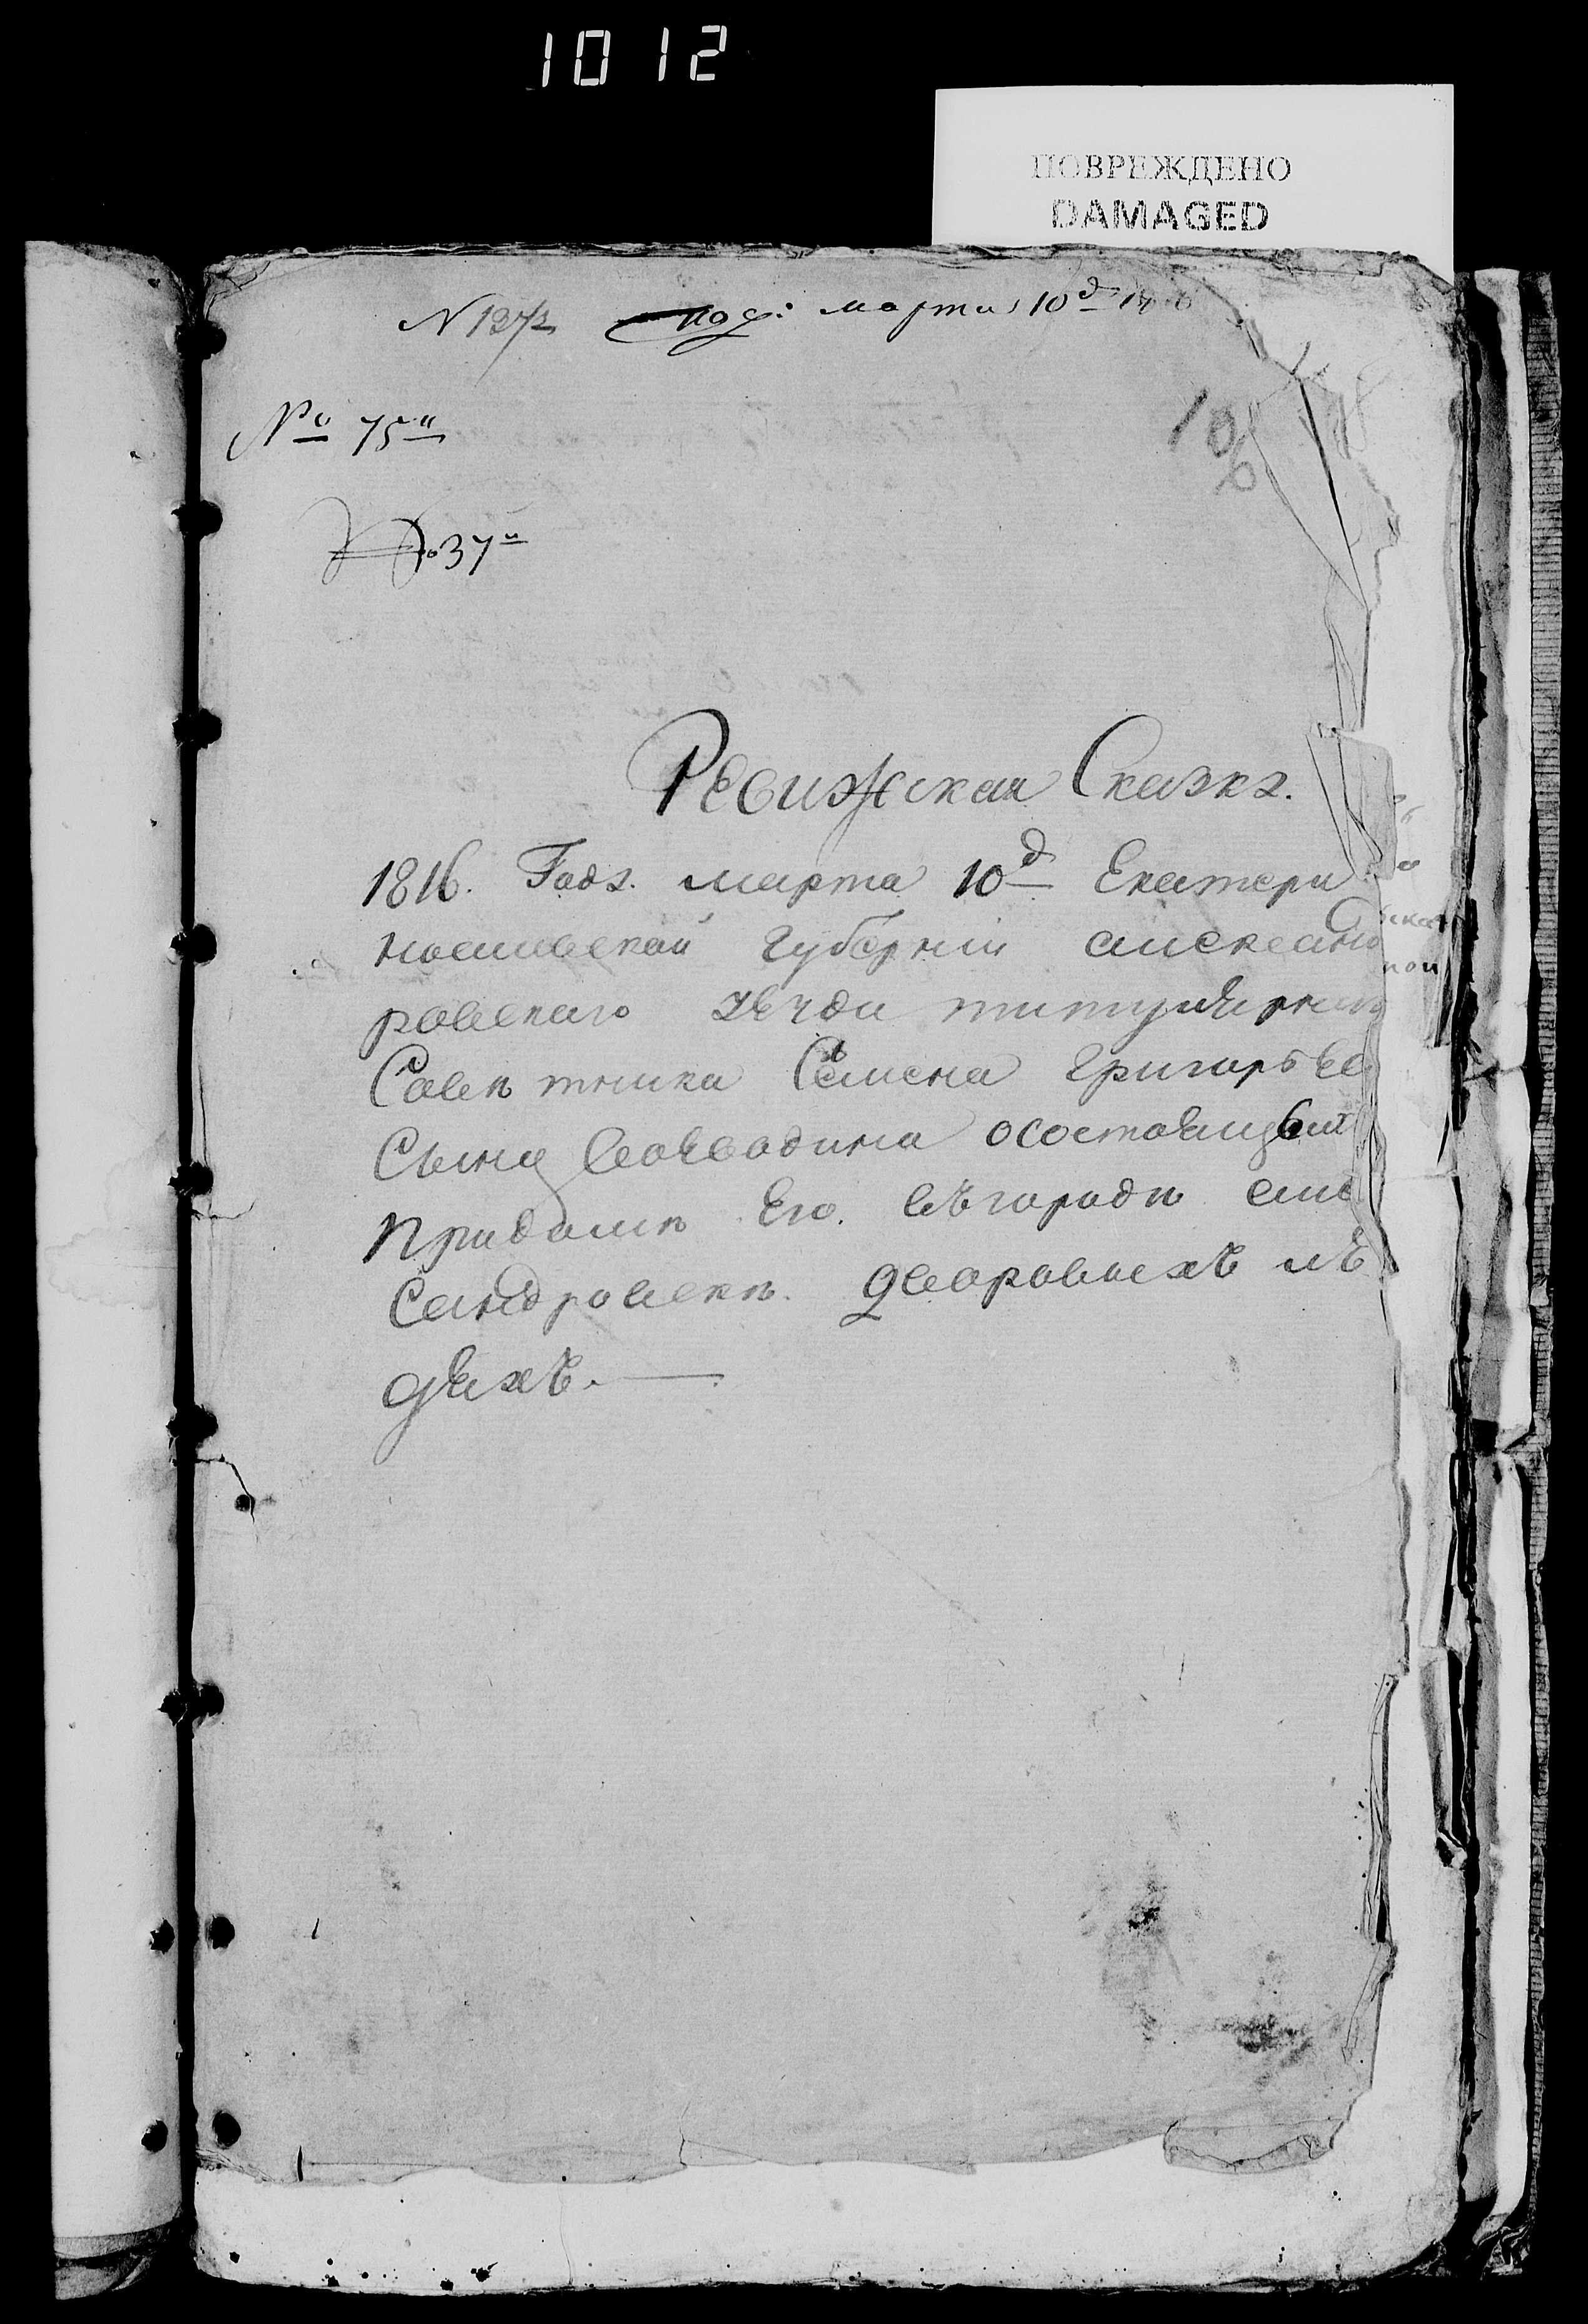 1012
ПОВРЕЖДЕНО
DAMAGED
N 1373 под: марта 10д 18
№ 75й
№ 37й
106
Ревижская Сказка.
1816. Года. марта 10д Екатери
нославской губернии александ
ровскаго уезда титулярнаго
Советника Семена григорьев
Сына воеводина осостоящих
придоме Его. въгороде алек
сандровске. дворовыхъ лю
дяхъ.